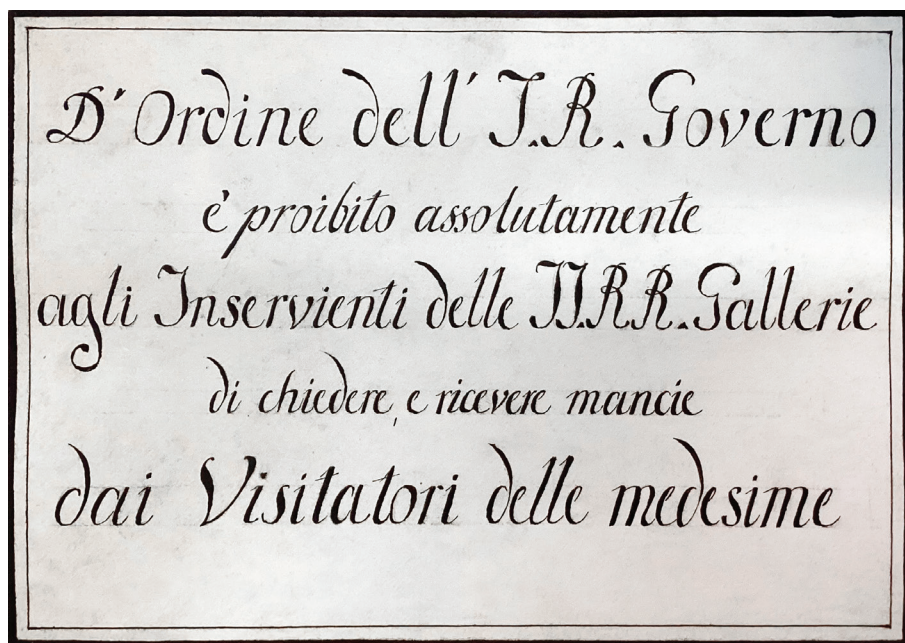 D'Ordine dell' I.R. Governo
è proibito assolutamente
agli Inservienti delle II.RR. Gallerie
di chiedere, e ricevere mancie
dai Visitatori delle medesime